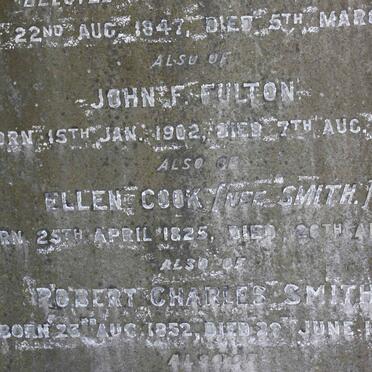 22ND AUG. 1847, DIED 5TH MAR
ALSO OF
JOHN F. FULTON
ORN 15TH JAN. 1902, DIED 7TH AUG.
ALSO OF
ELLEN COOK (NEE SMITH.)
RN. 25TH APRIL 1825, DIED
ALSO OF
ROBERT CHARLES SMITH
BORN 23RD AUG. 1852, DIED 28TH JUNE 1
ALSO OF